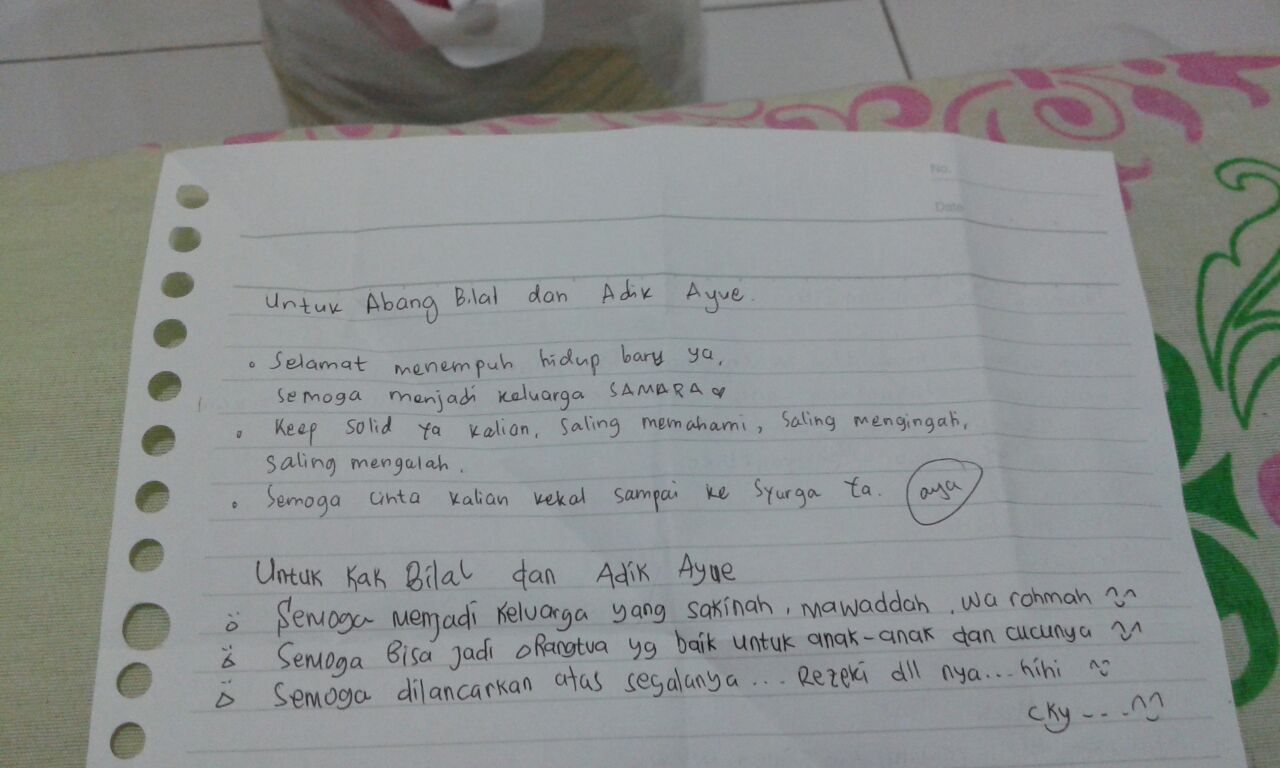 No.
Date
Untuk Abang Bilal dan Adik Ayue.
• Selamat menempuh hidup baru ya,
semoga menjadi keluarga SAMARA ♡
• Keep solid ya kalian, saling memahami, saling mengingat,
saling mengalah.
• Semoga cinta kalian kekal sampai ke Syurga ya. aya
Untuk Kak Bilal dan Adik Ayue
Semoga menjadi keluarga yang sakinah, mawaddah, wa rohmah
Semoga Bisa jadi oRangtua yg baik untuk anak-anak dan cucunya
Semoga dilancarkan atas segalanya... Rezeki dll nya... hihi
cky - - -